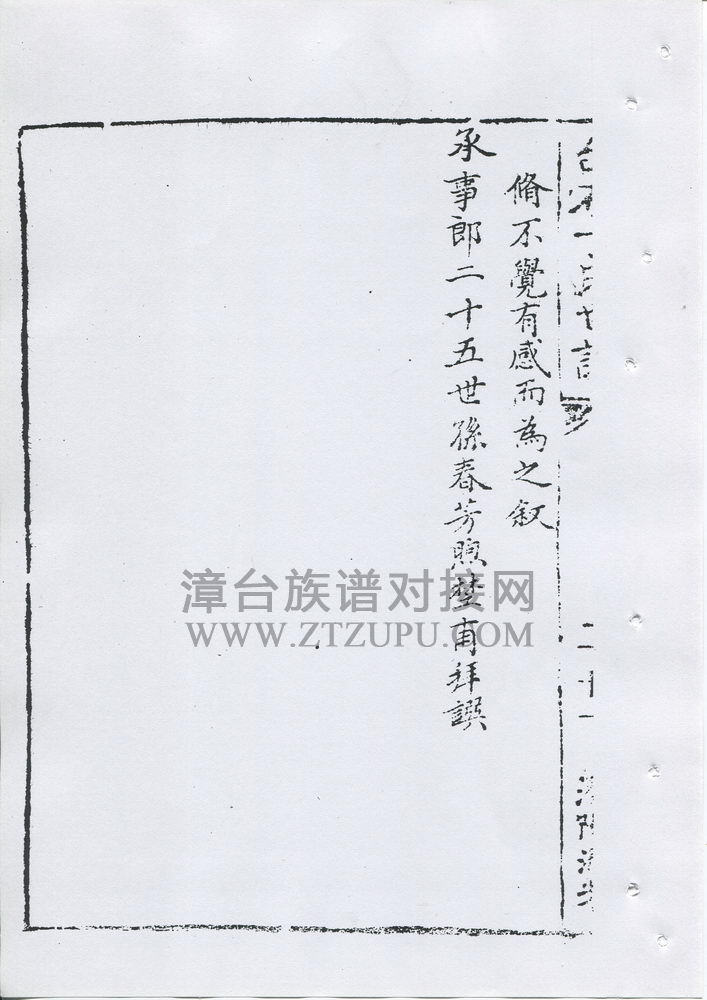 脩不覺有感而為之敘
承事郎二十五世孫春芳煦埜甫拜譔
二十一
漳台族谱对接网
WWW.ZTZUPU.COM